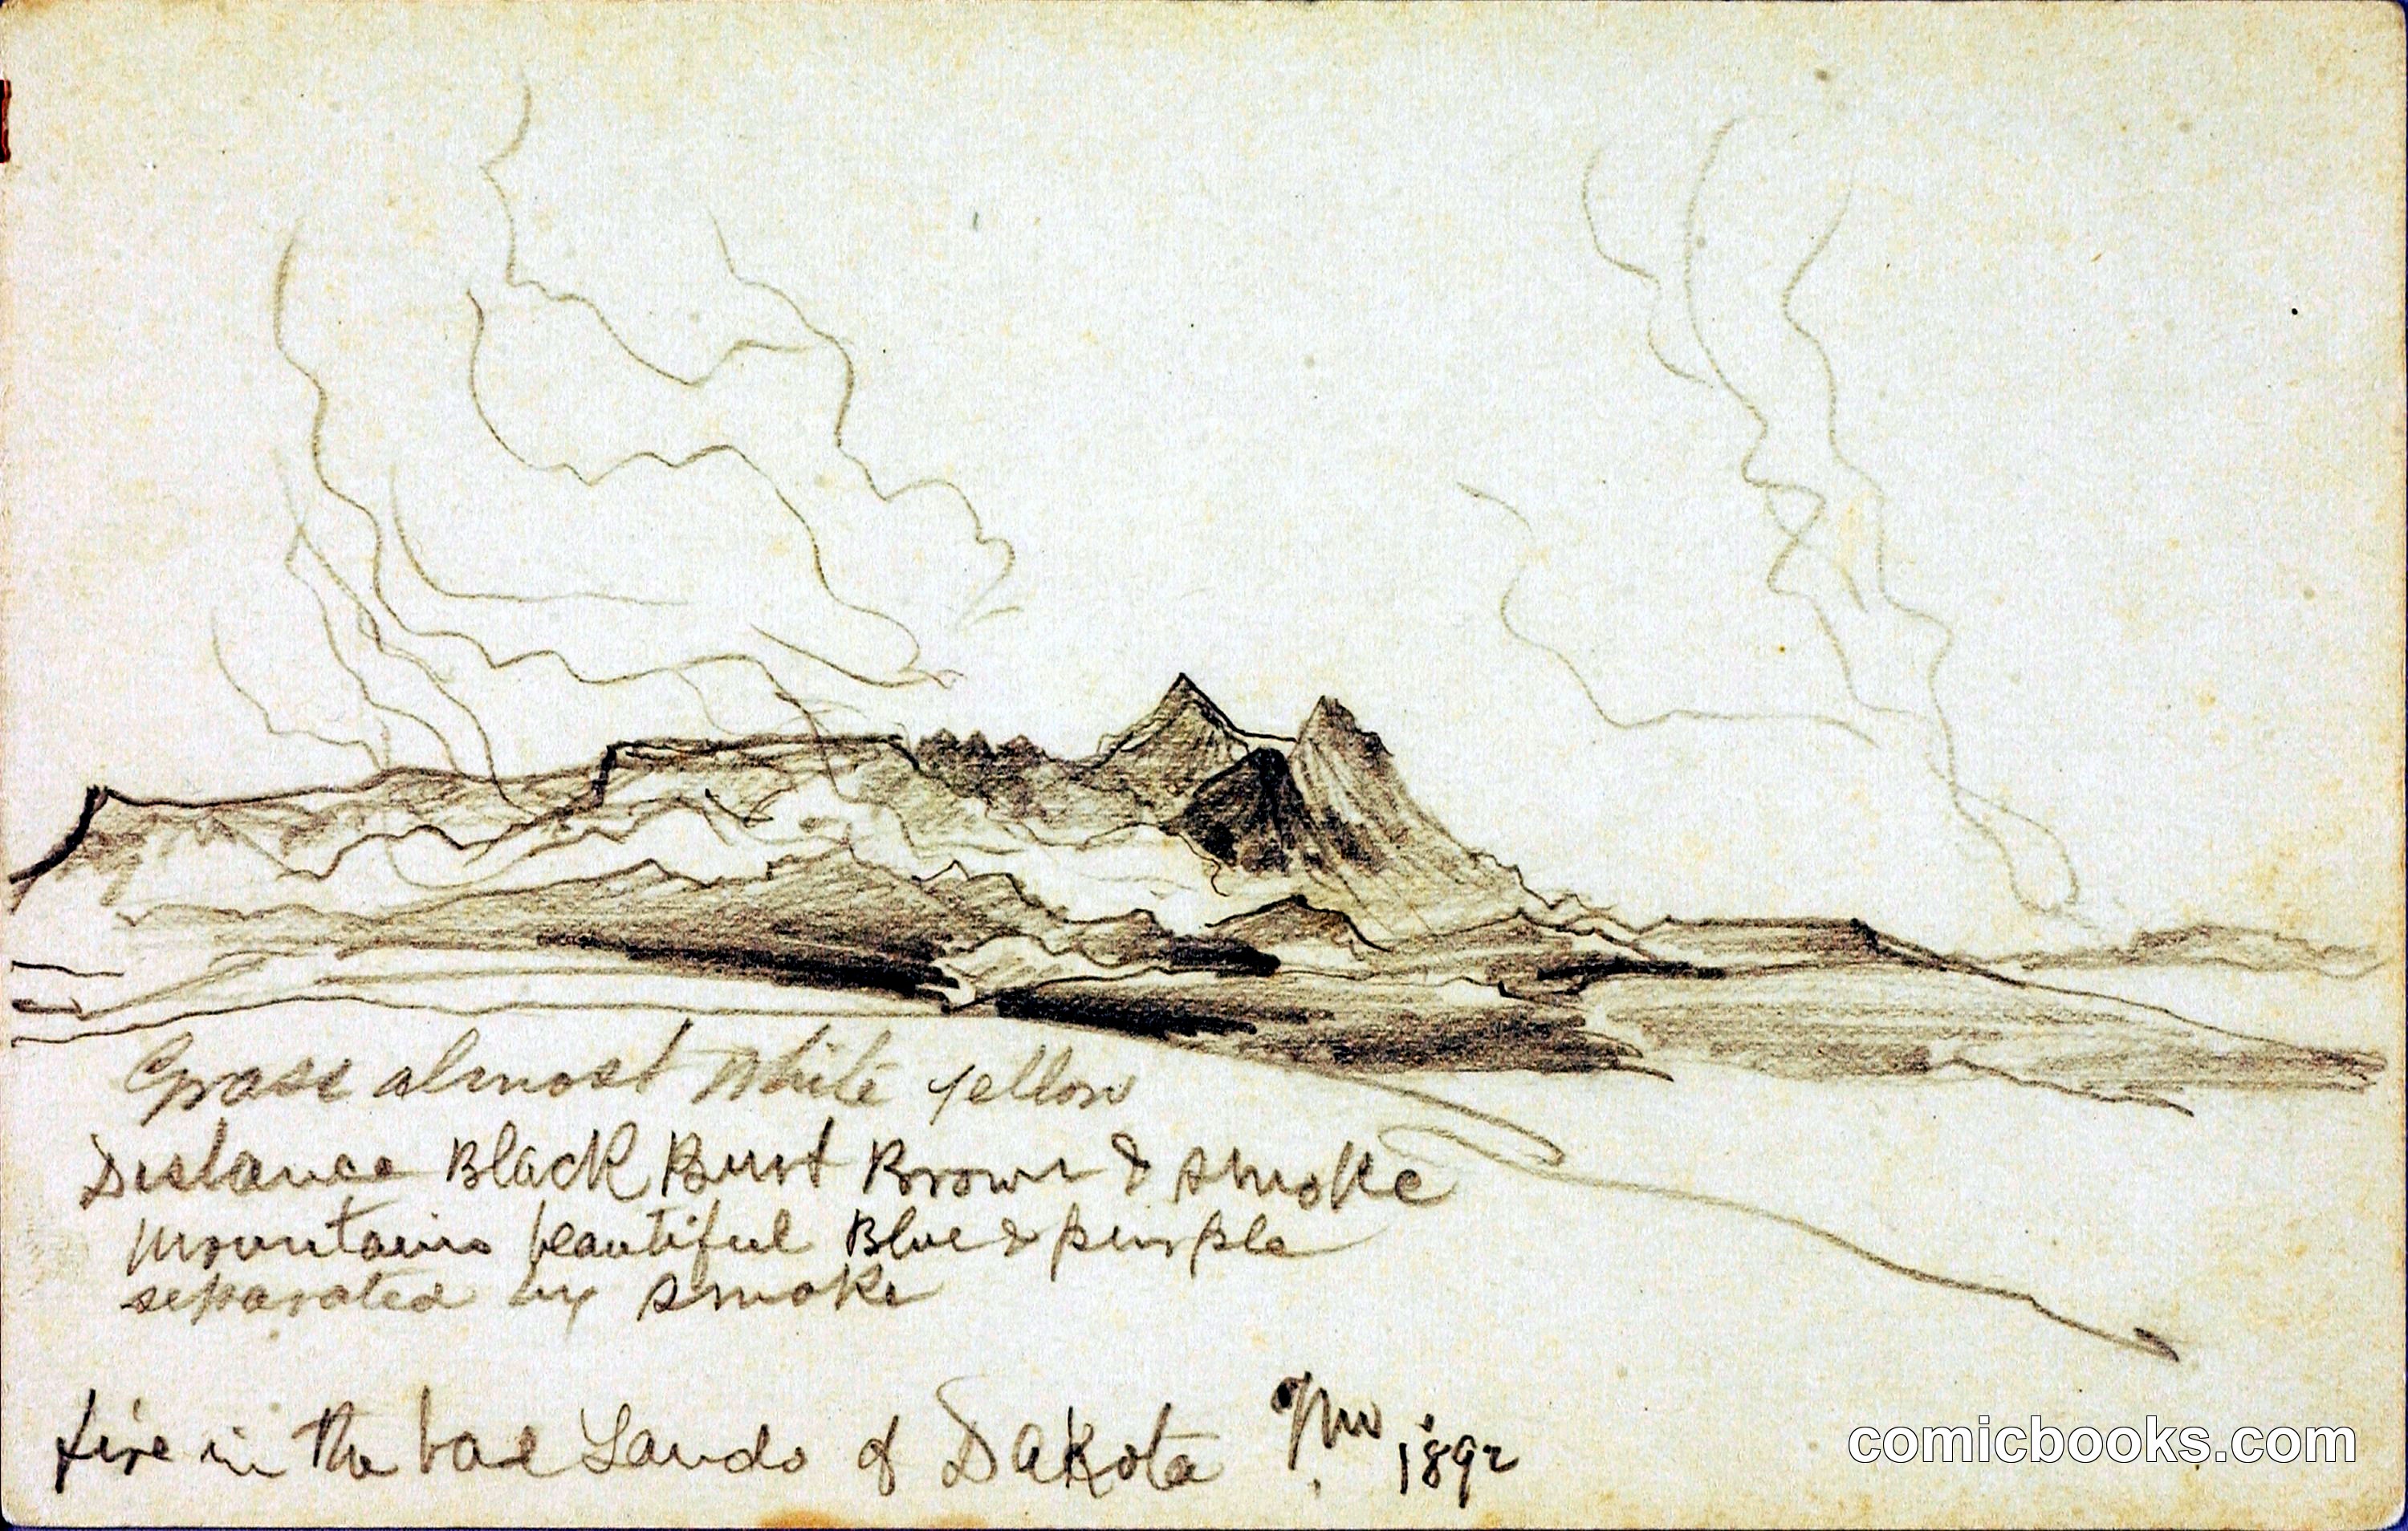 Grass almost white yellow
Distance Black Burnt Brown & smoke
mountains beautiful Blue & purple
separated by smoke
fire in the bad Lands of Dakota 1892
comicbooks.com